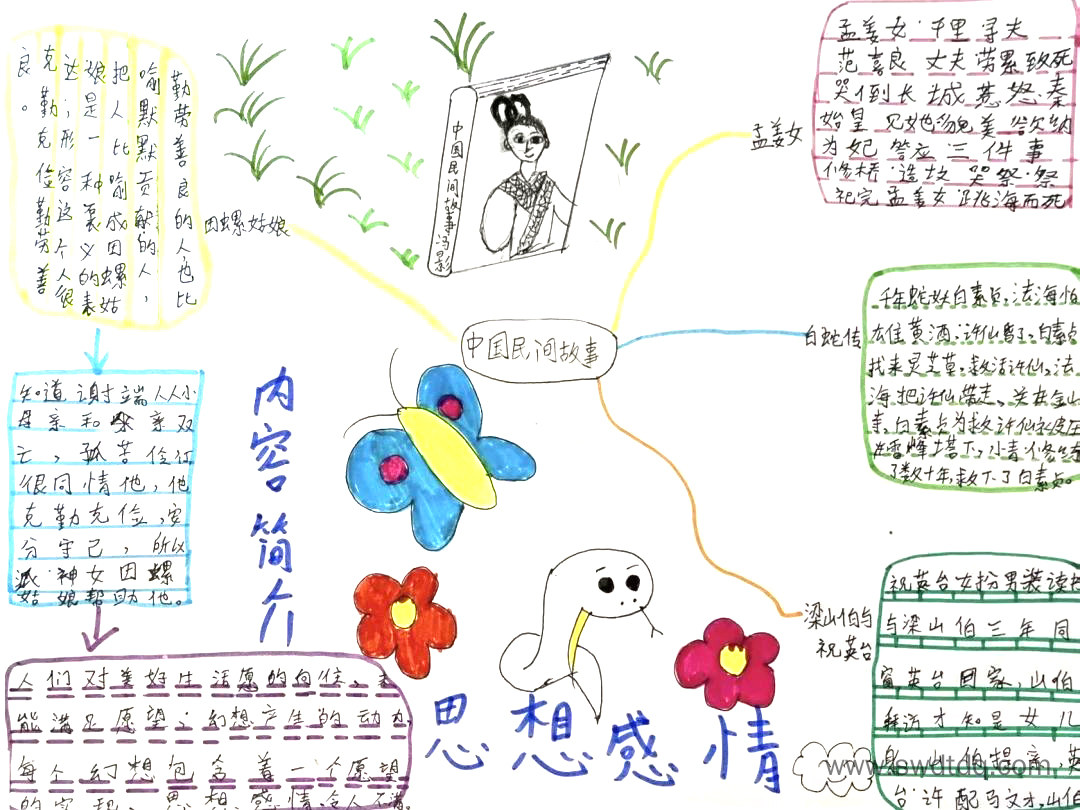 勤劳善良的人也比
喻默默贡献的人，
把人比喻成田螺姑
娘是一种褒义的表
达；形容这个人很
克勤克俭勤劳善
良。
田螺姑娘
知道谢端从小
母亲和父亲双
亡，孤苦伶仃
很同情他，他
克勤克俭，安
分守己，所以
派神女田螺
姑娘帮助他。
人们对美好生活愿的向往、
能满足愿望；幻想产生的动力
每个幻想包含着一个愿望
思想感情
内容简介
思想感情
中国民间故事冯影
中国民间故事
孟姜女
孟姜女千里寻夫
范喜良丈夫劳累致死
哭倒长城惹怒秦
始皇见她貌美欲纳
为妃答应三件事
修桥·造坟哭祭·祭
祀完孟姜女跳海而死
白蛇传
千年蛇妖白素贞，法海怕
雄黄酒，许仙
找来灵芝草，救活许仙，法
海把许仙带走、关在金山
寺，白素贞为救许仙水
雷峰塔下，小青修
了数十年，救下了白素贞。
梁山伯与
祝英台
祝英台女扮男装读
与梁山伯三年同
窗英台回家，山伯
拜访才知是女儿
身，山伯提亲，英
台许配马文才，山伯